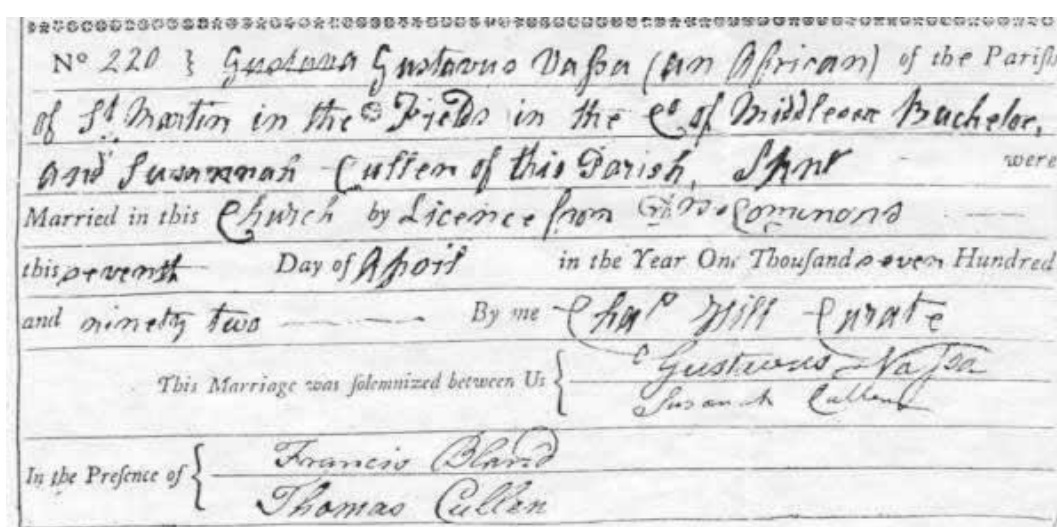 Nº 220 } Gustava Gustavus Vaſsa (an African) of the Pariſh
of St Martin in the Fields in the Co of Middlesex Bachelor,
and Susannah Cullen of this Parish, Spnr were
Married in this Church by Licence from Drs Commons
this seventh Day of April in the Year One Thouſand seven Hundred
and ninety two By me Chas Hill Curate
This Marriage was ſolemnized between Us { Gustavus Vaſsa
Susanah Cullen
In the Preſence of { Francis Bland
Thomas Cullen